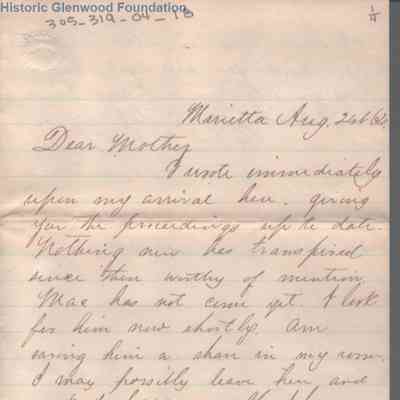 Historic Glenwood Foundation
305-319-04-18
1/4
Marietta Aug. 24th/64
Dear Mother
I wrote immediately
upon my arrival here. giving
you the proceedings up to date.
Nothing new has transpired
since then worthy of mention
Mac has not come yet I look
for him now shortly. Am
saving him a share in my room.
I may possibly leave here and